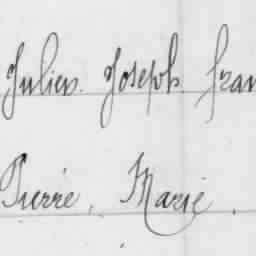 Julien Joseph fran
Pierre, Marie.